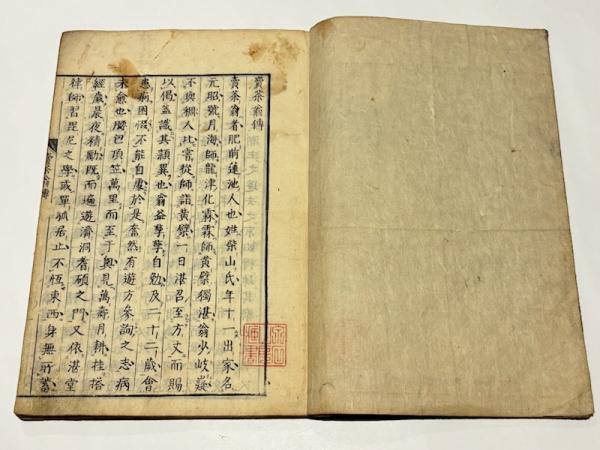 賣茶翁傳
賣茶翁者肥前蓮池人也姓柴山氏年十一出家名
元昭號月海師龍津化霖霖師黃檗獨湛翁少岐嶷
不與稠人比嘗從師詣黃檗一日湛召至方丈而賜
以偈蓋識其穎異也翁益孳孳自勉及二十二歲會
患痢困惙不能自慶於是奮然有遊方參詢之志病
未愈也腰包頂笠萬里而至于奧見萬壽月耕桂搭
經歲晨夜精勵既而遍遊濟洞耆碩之門又依湛堂
律師習毘尼之學或單猶居止不恆東西身無所蓄